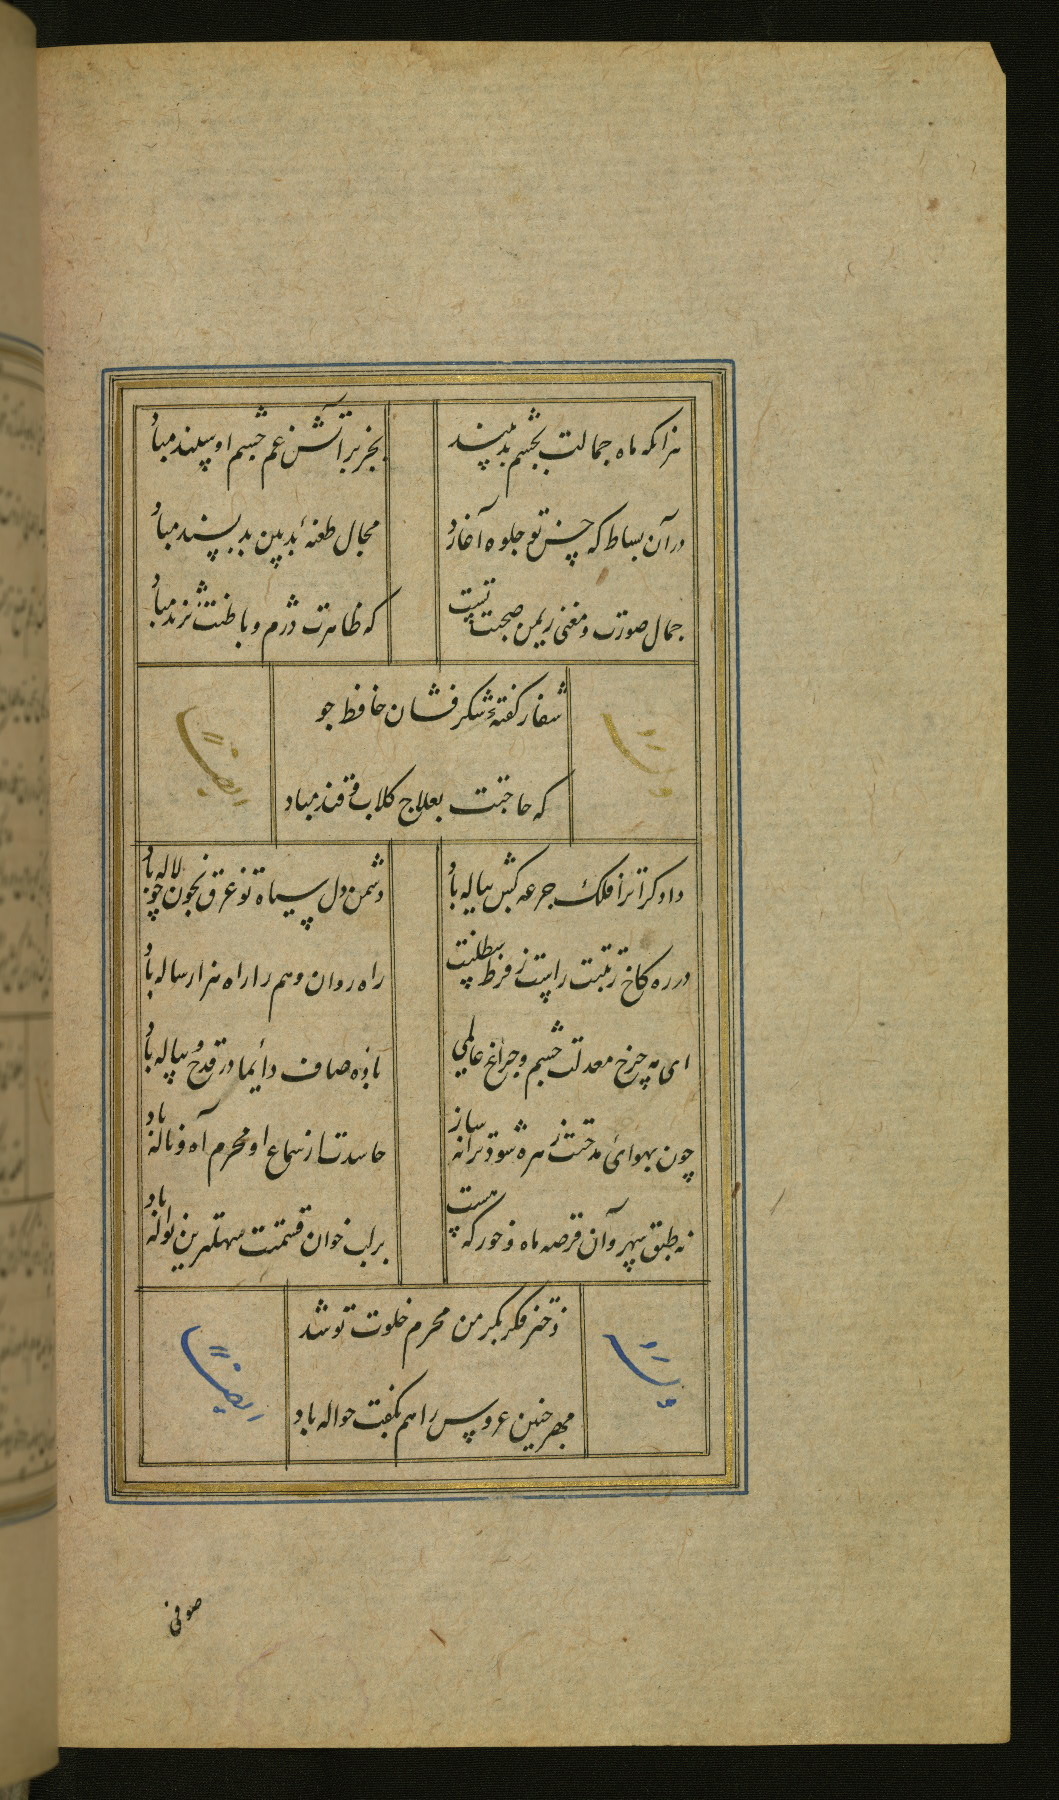 هرانکه ماه جمالت بچشم بد بیند
بجز بر آتش غم چشم او سپند مباد
در آن بساط که حسن تو جلوه آغازد
مجال طعنهٔ بدبین بدپسند مباد
جمال صورت و معنی زیمن صحبت تست
که ظاهرت دژم و باطنت نژند مباد
شفا ز گفتهٔ شکرفشان حافظ جو
که حاجتت بعلاج کلاب و قند مباد
وله
ایضا
دادکرا ترا فلک جرعه کش پیاله باد
دشمن دل سیاه تو غرق بخون چو لاله باد
ذروه کاخ رتبتت راست ز فرط سلطنت
راه روان وهم را راه هزار ساله باد
ای مه چرخ معدلت چشم و چراغ عالمی
باده صاف دایما در قدح و پیاله باد
چون بهوای مدحتت زهره شود ترانه ساز
حاسدت از سماع او محرم آه و ناله باد
نه طبق سپهر و آن قرصه ماه و خور که هست
بر لب خوان قسمتت سهلترین نواله باد
دختر فکر بکر من محرم خلوت تو شد
مهر چنین عروس را هم بکفت حواله باد
ایضا
صوفی